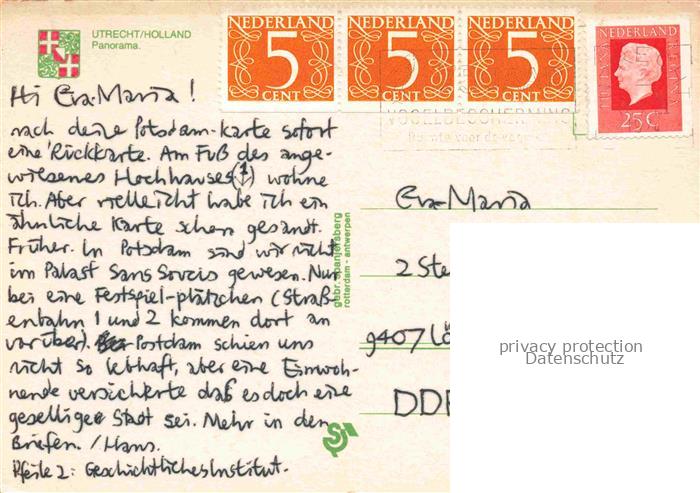 UTRECHT/HOLLAND
Panorama.
NEDERLAND NEDERLAND NEDERLAND NEDERLAND
5 5 5
CENT CENT CENT 25 C
VOGELBESCHERMING
Ruimte voor de
Hi Eva-Maria!
nach deine Potsdam-karte sofort
eine Rückkarte. Am Fuß des ange-
wiesenes Hochhauses (1) wohne
ich. Aber vielleicht habe ich ein
ähnliche Karte schon gesandt.
Früher. In Potsdam sind wir nicht
im Palast Sans Soucis gewesen. Nur
bei eine Festspiel-plätzchen (Straß-
enbahn 1 und 2 kommen dort an
vorüber). Potsdam schien uns
nicht so lebhaft, aber eine Einwoh-
nende versicherte daß es doch eine
gesellige Stadt sei. Mehr in den
Briefen. /Hans.
Pfeile 2: Geschichtliches Institut.
gebr. spanjersberg
rotterdam - antwerpen
Eva-Maria
2 Ste
9407 Lö
DDR
privacy protection
Datenschutz